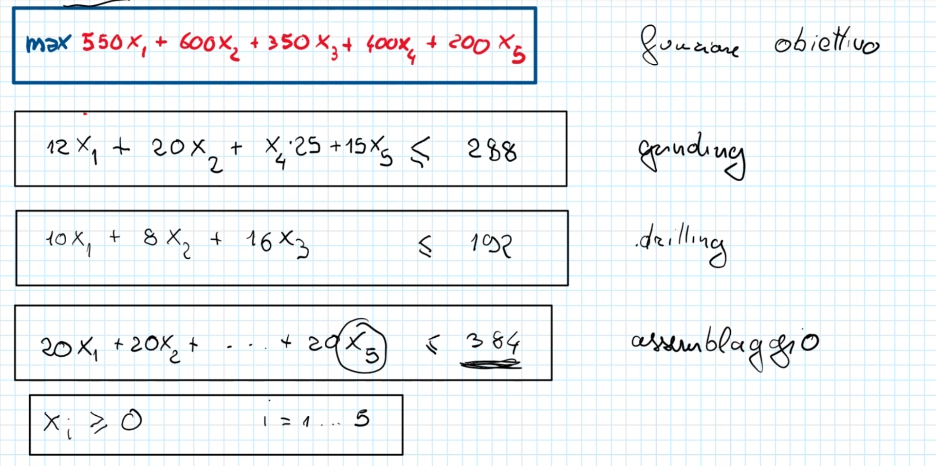 max 550x₁ + 600x₂ + 350x₃ + 400x₄ + 200x₅ funzione obiettivo
12x₁ + 20x₂ + x₄·25 + 15x₅ ≤ 288 grinding
10x₁ + 8x₂ + 16x₃ ≤ 192 drilling
20x₁ + 20x₂ + ... + 20x₅ ≤ 384 assemblaggio
xᵢ ≥ 0 i = 1 ... 5